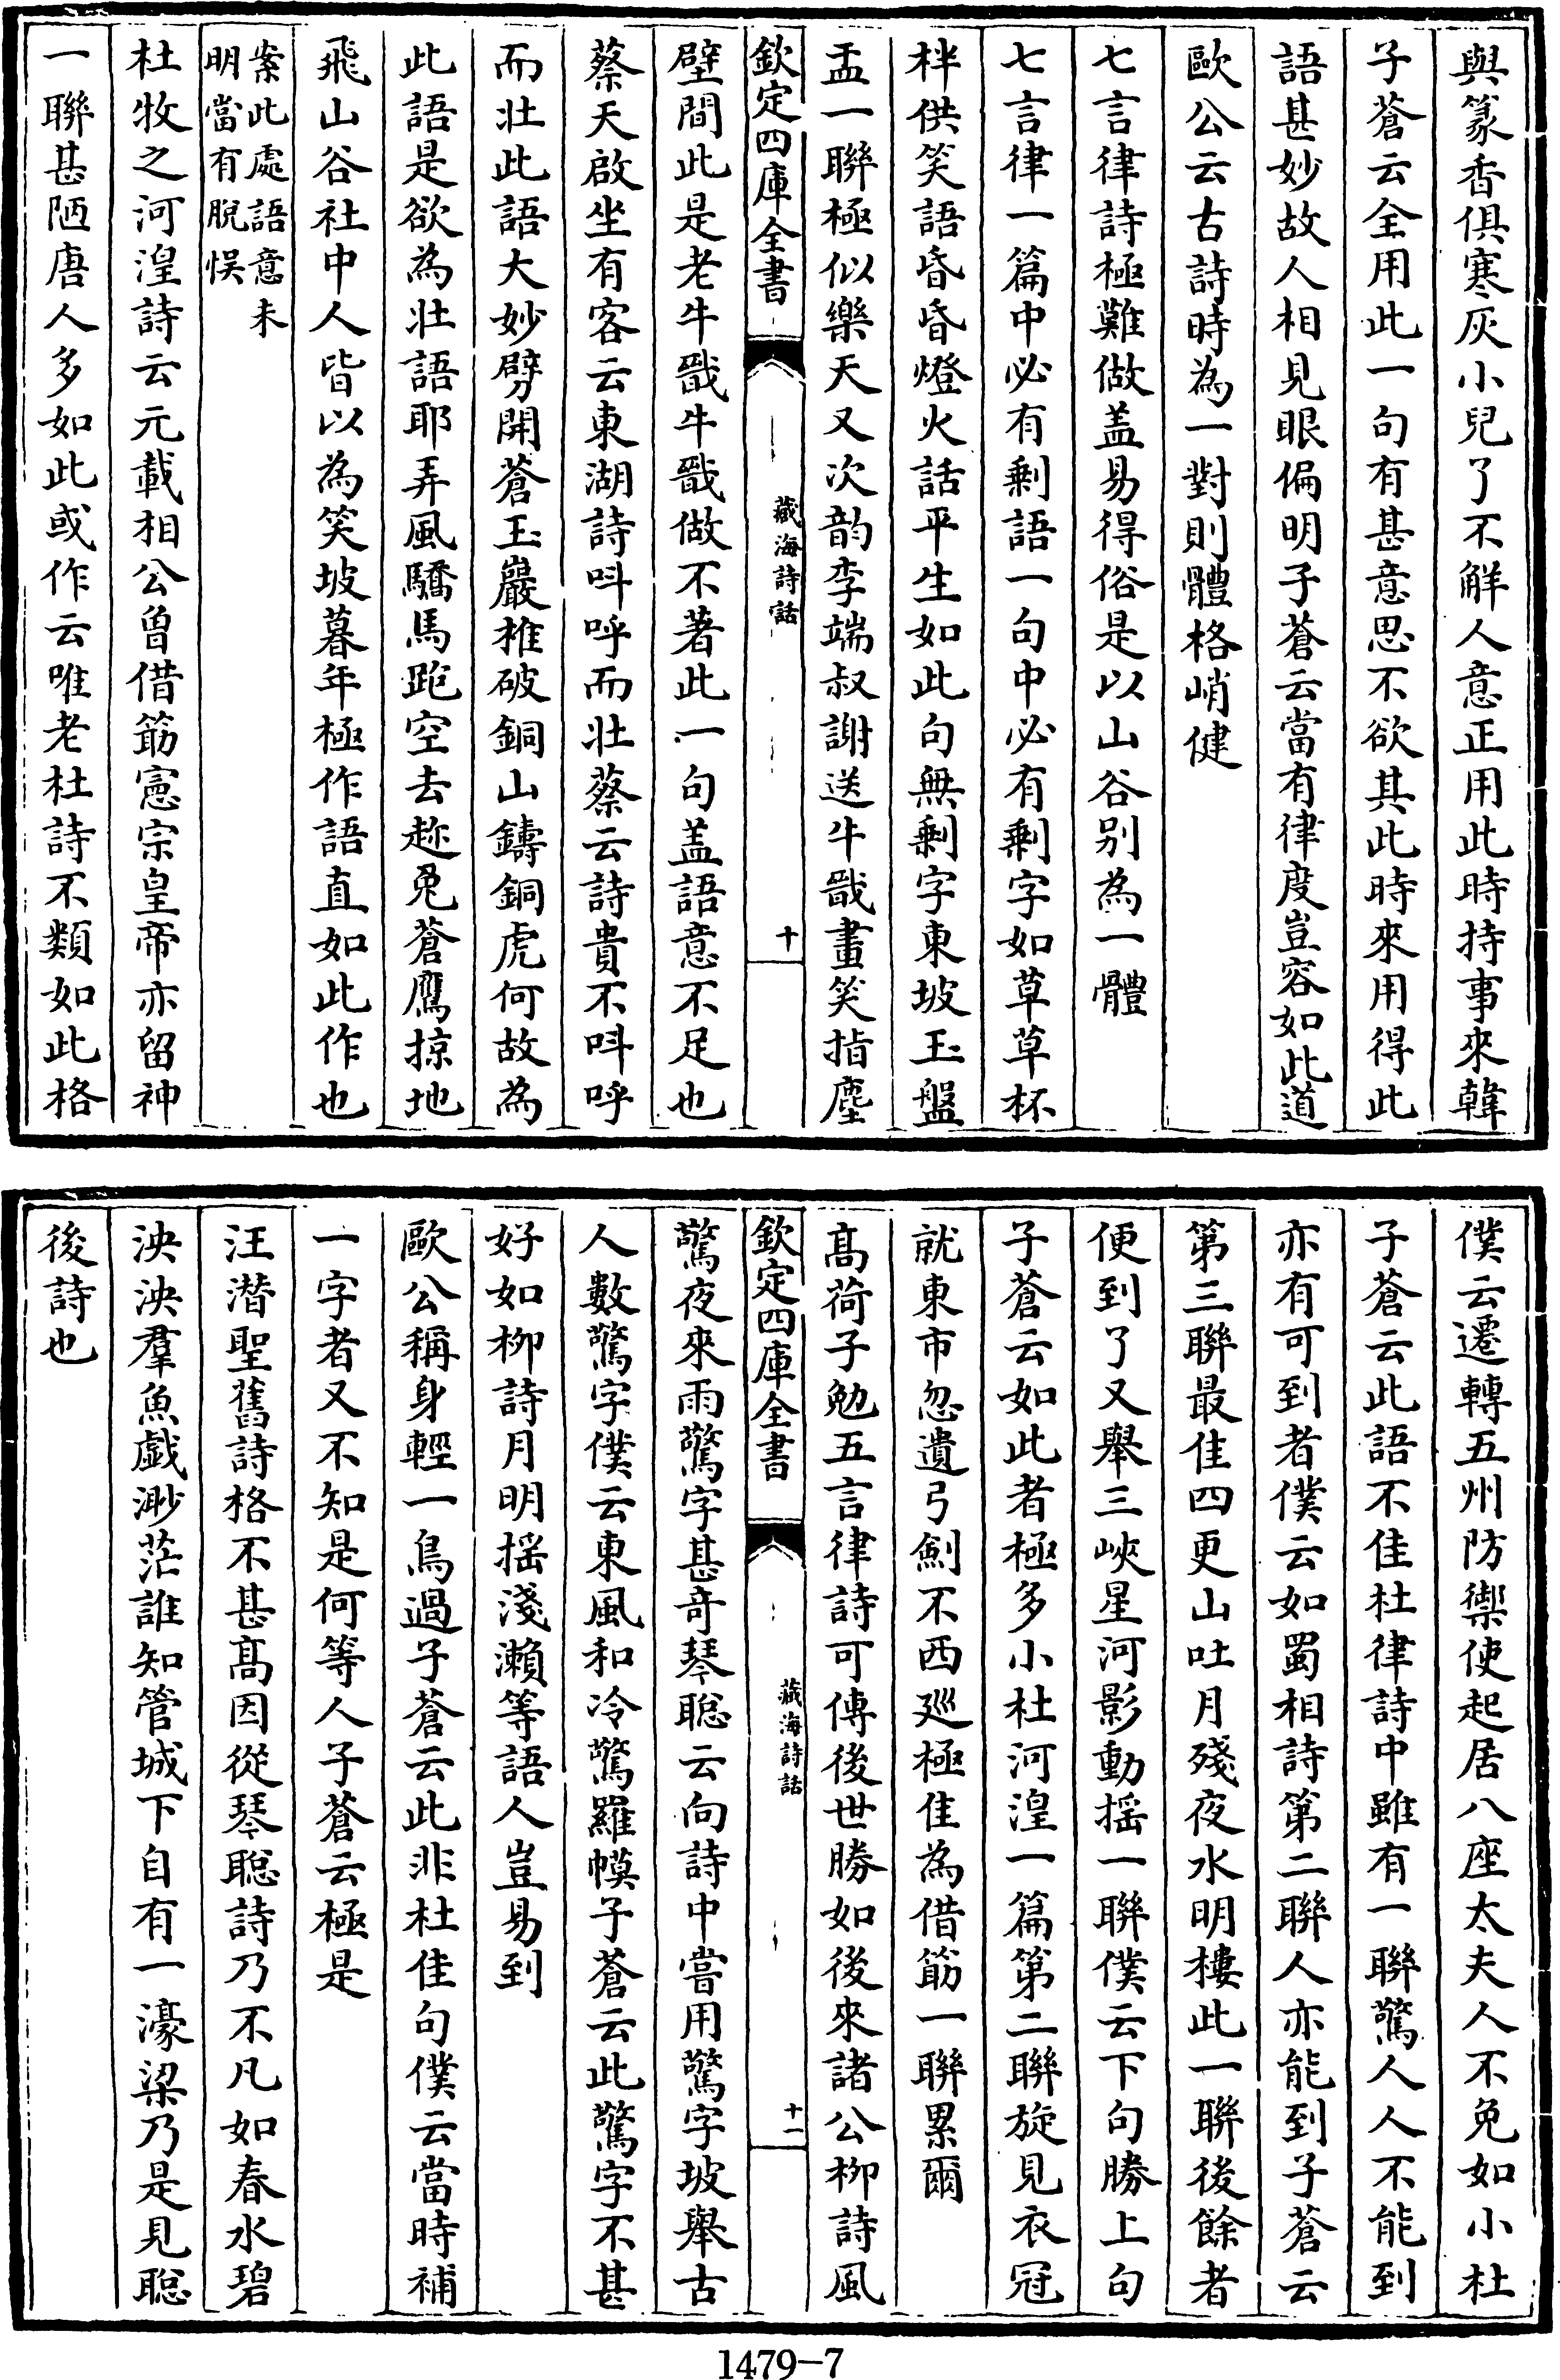 與篆香俱寒灰小兒了不解人意正用此時持事來韓
子蒼云全用此一句有甚意思不欲其此時來用得此
語甚妙故人相見眼偏明子蒼云當有律度豈容如此道
歐公云古詩時為一對則體格峭健
七言律詩極難做盖易得俗是以山谷别為一體
七言律一篇中必有剩語一句中必有剩字如草草杯
柈供笑語昏昏燈火話平生如此句無剩字東坡玉盤
盂一聯極似樂天又次韵李端叔謝送牛戩畫笑指塵
欽定四庫全書
藏海詩話
十
壁間此是老牛戩牛戩做不著此一句盖語意不足也
蔡天啟坐有客云東湖詩呌呼而壯蔡云詩貴不呌呼
而壯此語大妙劈開蒼玉巖椎破銅山鑄銅虎何故為
此語是欲為壯語耶弄風驕馬跑空去趂兎蒼鷹掠地
飛山谷社中人皆以為笑坡暮年極作語直如此作也
案此處語意未
明當有脫悞
杜牧之河湟詩云元載相公曾借筯憲宗皇帝亦留神
一聯甚陋唐人多如此或作云唯老杜詩不類如此格
僕云遷轉五州防禦使起居八座太夫人不免如小杜
子蒼云此語不佳杜律詩中雖有一聯驚人人不能到
亦有可到者僕云如蜀相詩第二聯人亦能到子蒼云
第三聯最佳四更山吐月殘夜水明樓此一聯後餘者
便到了又舉三峽星河影動揺一聯僕云下句勝上句
子蒼云如此者極多小杜河湟一篇第二聯旋見衣冠
就東市忽遺弓劍不西廵極佳為借筯一聯累爾
髙荷子勉五言律詩可傳後世勝如後來諸公栁詩風
欽定四庫全書
藏海詩話
十一
驚夜來雨驚字甚竒琴聰云向詩中嘗用驚字坡舉古
人數驚字僕云東風和冷驚羅幙子蒼云此驚字不甚
好如栁詩月明揺淺瀨等語人豈易到
歐公稱身輕一鳥過子蒼云此非杜佳句僕云當時補
一字者又不知是何等人子蒼云極是
汪潛聖舊詩格不甚髙因從琴聰詩乃不凡如春水碧
泱泱羣魚戯渺茫誰知管城下自有一濠梁乃是見聰
後詩也
1479-7